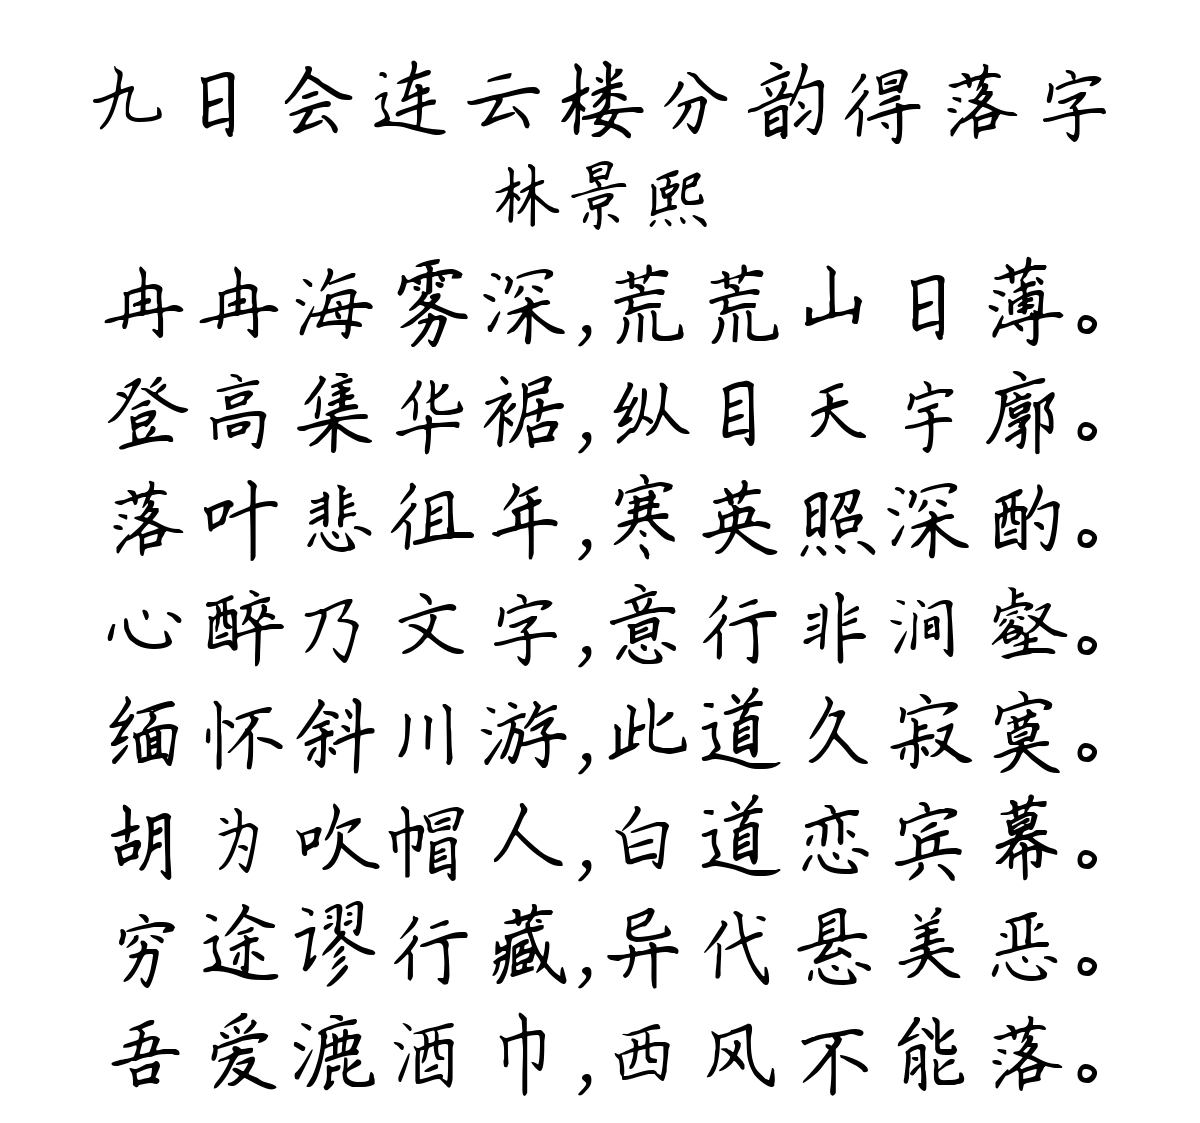 九日会连云楼分韵得落字
林景熙
冉冉海雾深,荒荒山日薄。
登高集华裾,纵目天宇廓。
落叶悲徂年,寒英照深酌。
心醉乃文字,意行非涧壑。
缅怀斜川游,此道久寂寞。
胡为吹帽人,白道恋宾幕。
穷途谬行藏,异代悬美恶。
吾爱漉酒巾,西风不能落。